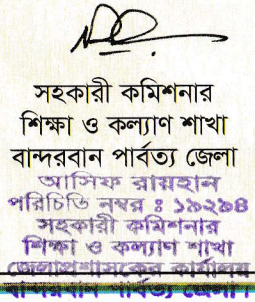 সহকারী কমিশনার
শিক্ষা ও কল্যাণ শাখা
বান্দরবান পার্বত্য জেলা
আসিফ রায়হান
পরিচিতি নম্বর : ১৯২৯৪
সহকারী কমিশনার
শিক্ষা ও কল্যাণ শাখা
জেলাপ্রশাসকের কার্যালয়
বান্দরবান পার্বত্য জেলা।